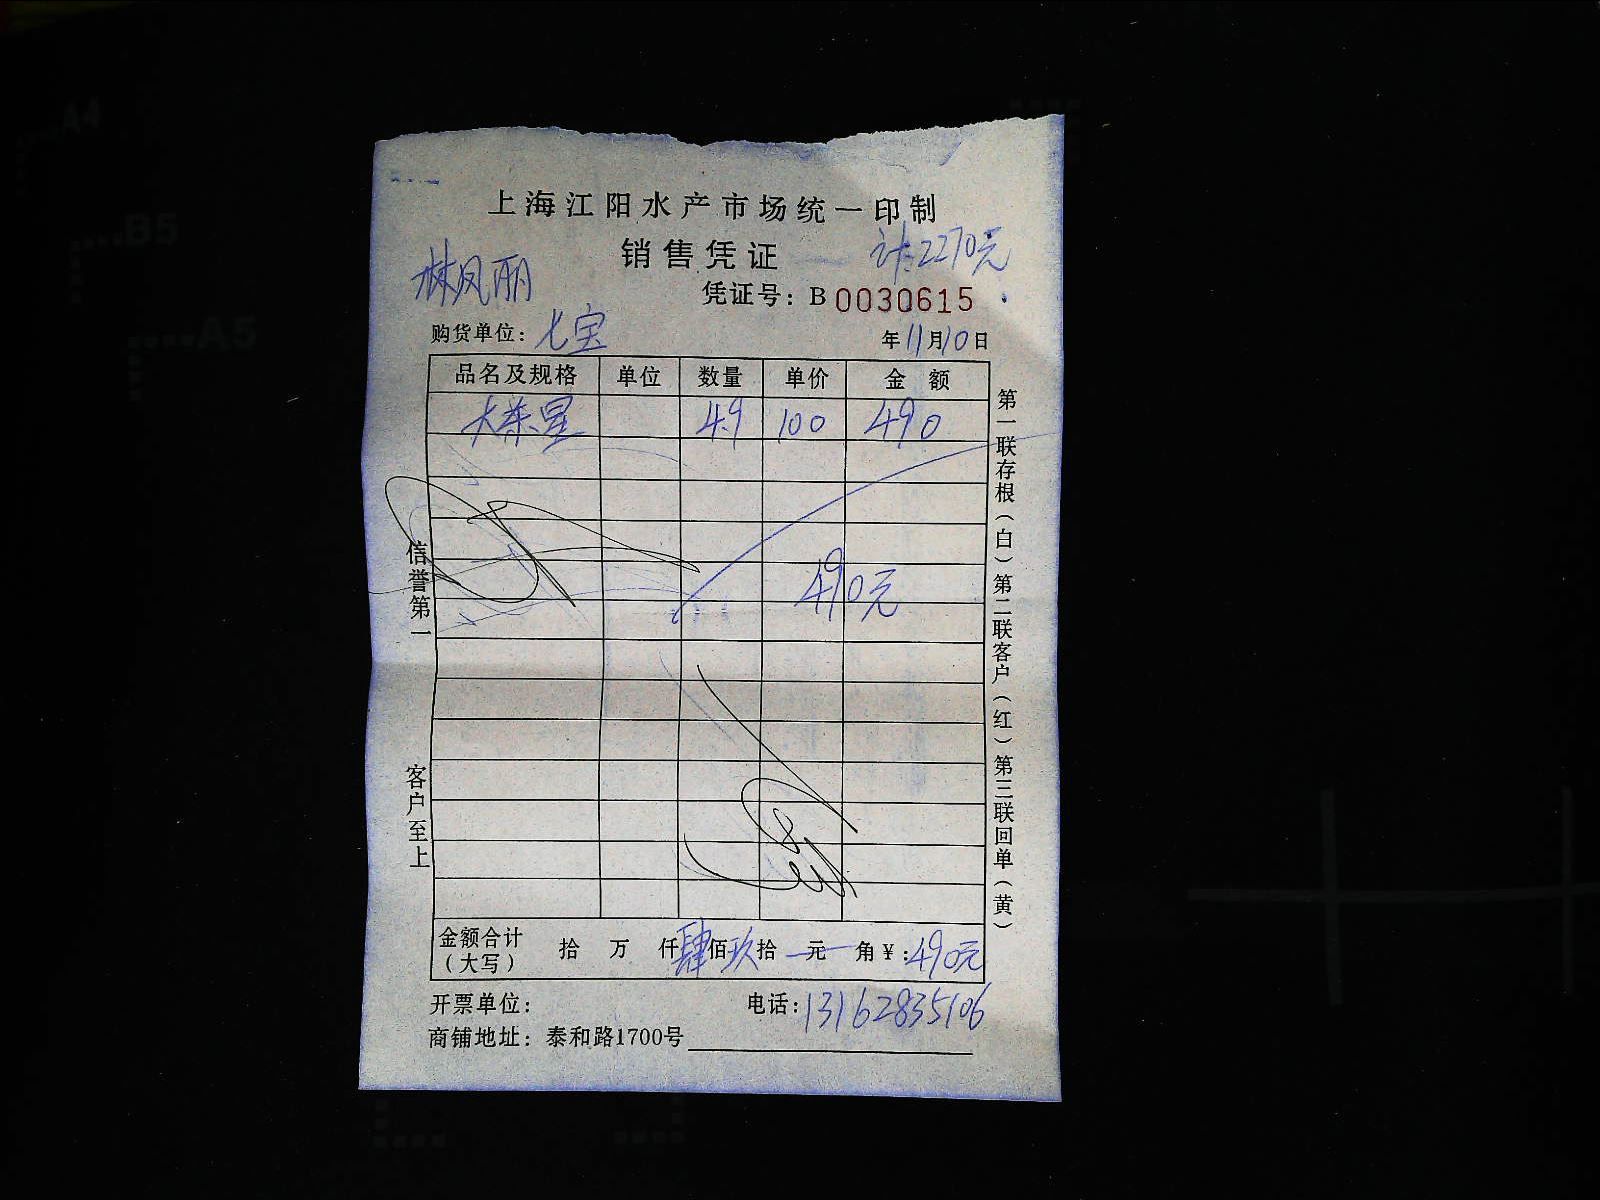 上海江阳水产市场统一印制
销售凭证 计:2270元
林凤丽
凭证号：B 0030615
购货单位：七宝 年11月10日
品名及规格 单位 数量 单价 金额
大东星 4.9 100 490
490元
信誉第一
客户至上
第一联存根（白）第二联客户（红）第三联回单（黄）
金额合计（大写） 拾 万 仟肆佰玖拾 元 角￥:490元
开票单位： 电话：13162835106
商铺地址：泰和路1700号
A4
B5
A5